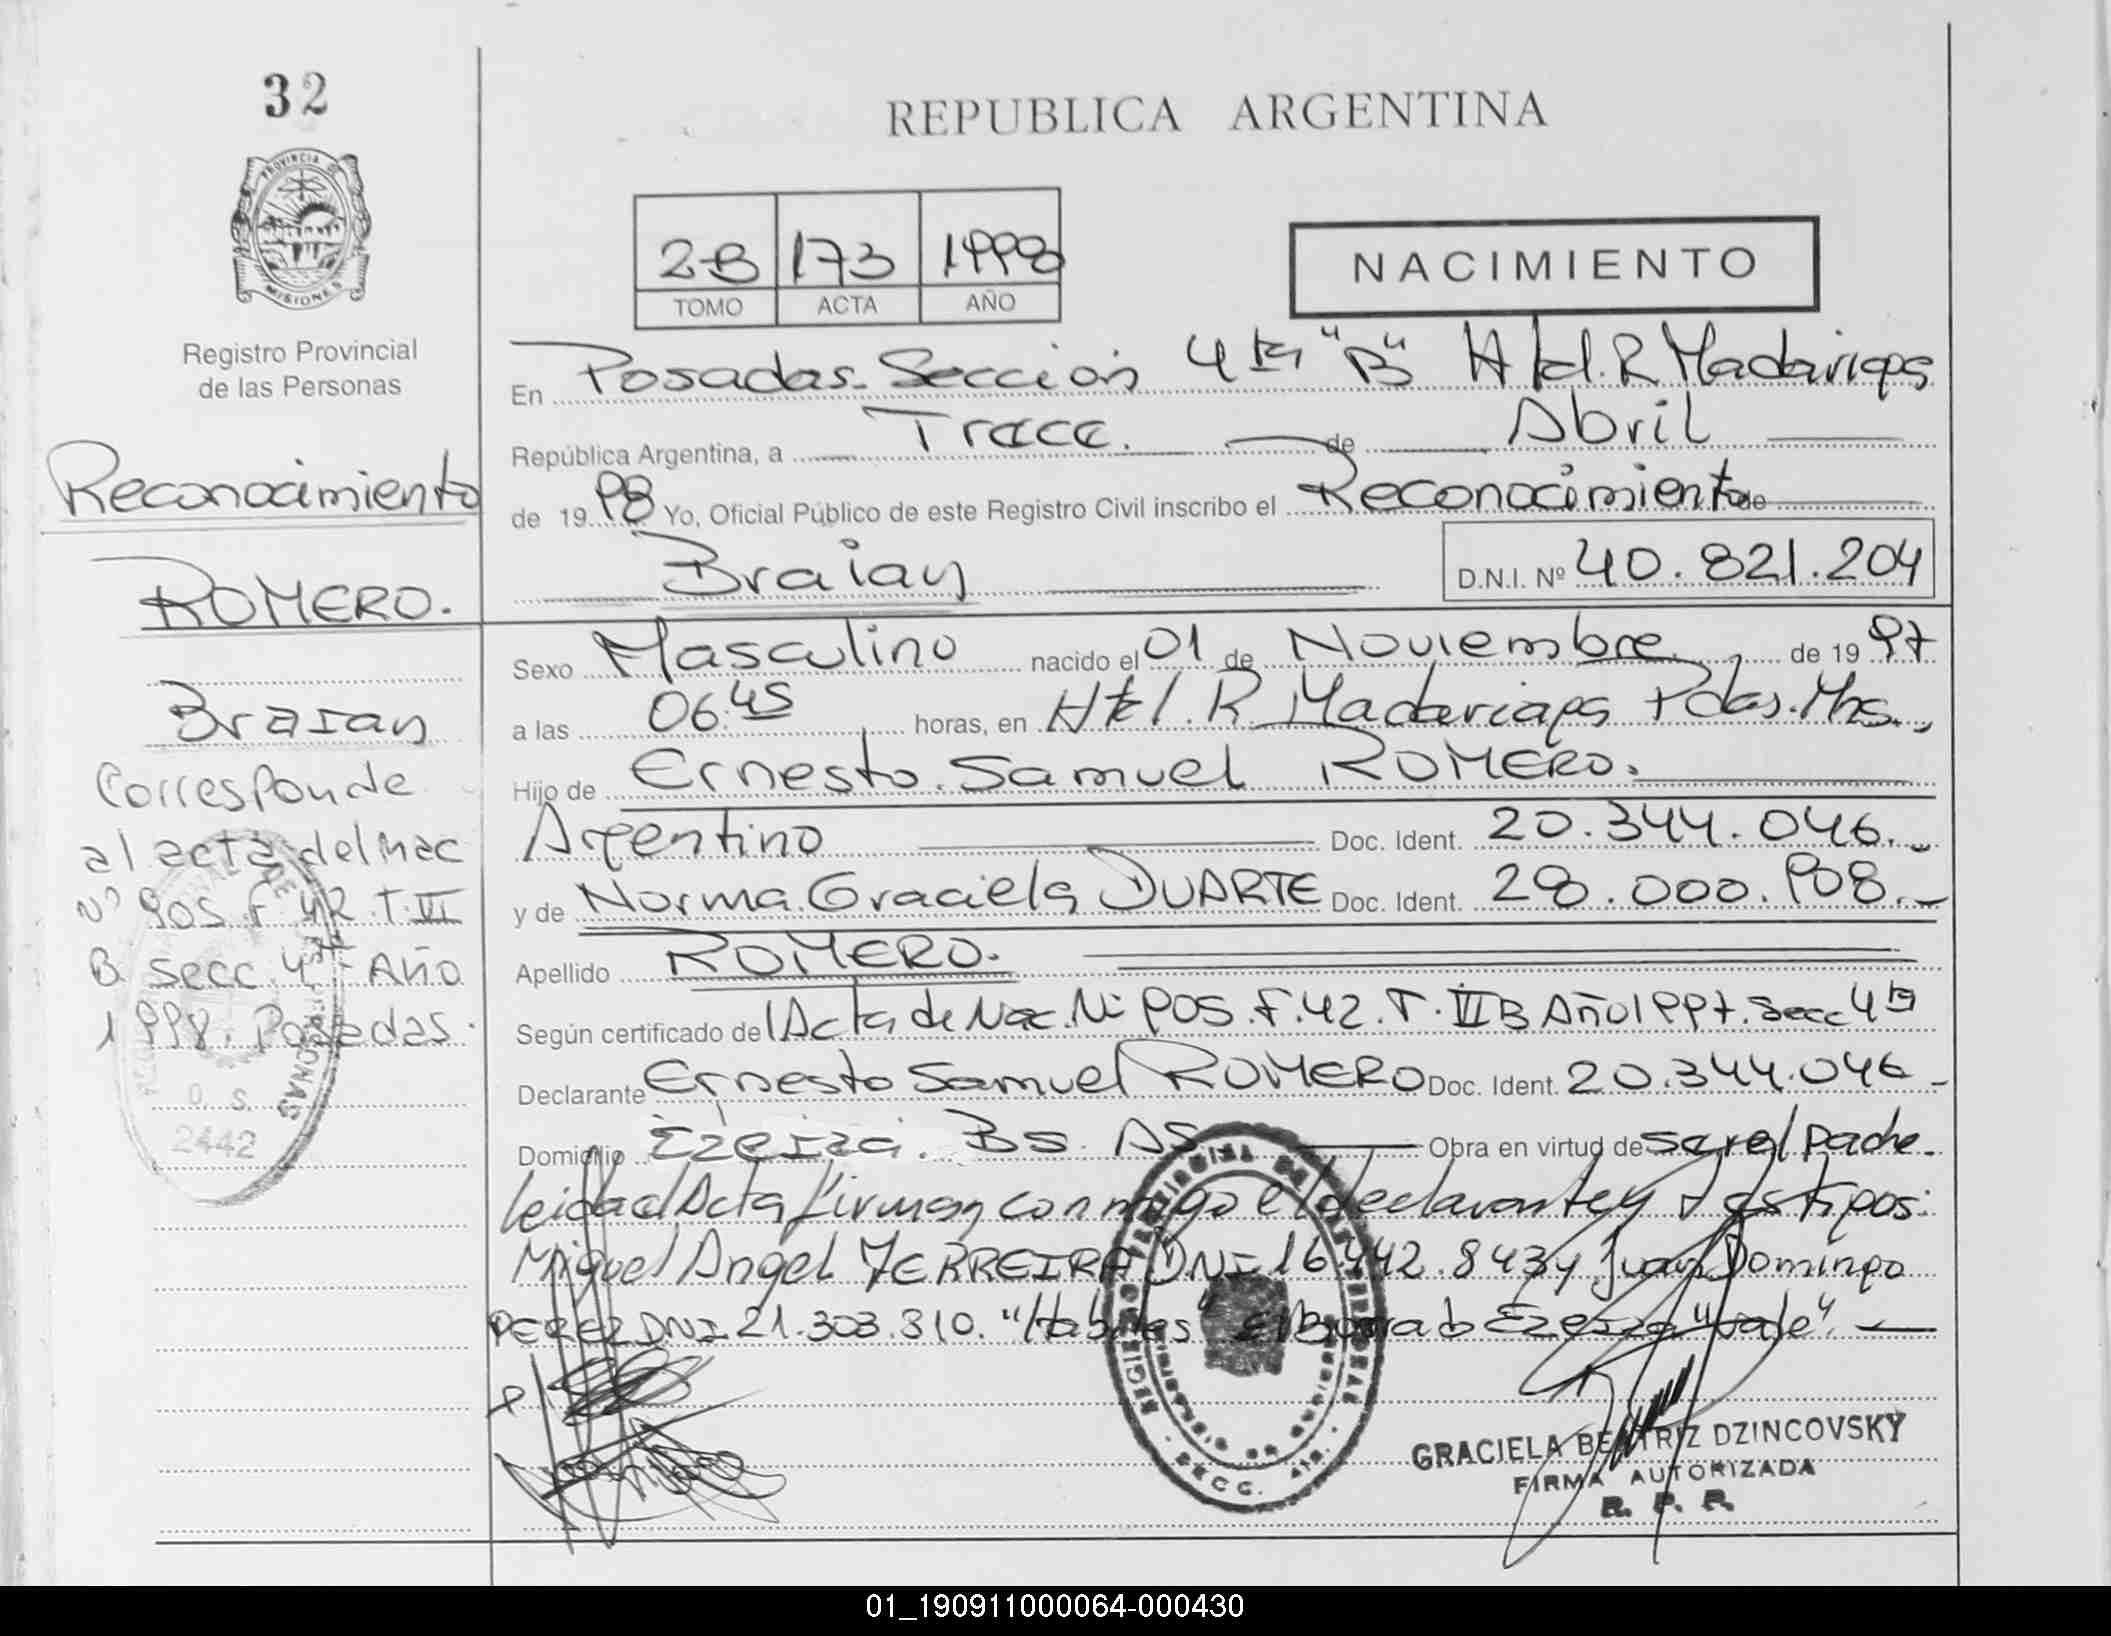 32
PROVINCIA DE
MISIONES
Registro Provincial
de las Personas
Reconocimiento
ROMERO.
Braian
Corresponde
al acta del Nac
Nº 905 F. 42. T. VI
B Secc. 4ta Año
1998. Posadas.
D. S.
2442
REPUBLICA ARGENTINA
2-B 173 1998
TOMO ACTA AÑO
NACIMIENTO
En Posadas. Sección 4ta "B" Htal. R Madariaga
República Argentina, a Trece. de Abril
de 19 98 Yo, Oficial Público de este Registro Civil inscribo el Reconocimiento de
Braian D.N.I. Nº 40.821.204
Sexo Masculino nacido el 01 de Noviembre de 19 97
a las 06:45 horas, en Htal. R Madariaga Pdas. Mns.
Hijo de Ernesto Samuel ROMERO.
Argentino Doc. Ident. 20.344.046.
y de Norma Graciela DUARTE Doc. Ident. 28.000.908.
Apellido ROMERO.
Según certificado de Acta de Nac. Nº 905. F. 42. T. B Año 1997. Secc 4ta
Declarante Ernesto Samuel ROMERO Doc. Ident. 20.344.046
Domicilio Ezeiza. Bs. AS Obra en virtud de ser el padre.
Leida el Acta firman conmigo el declarante y
Miguel Angel FERREIRA DNI 16.442.843 y Juan Domingo
PEREZ DNI 21.303.310. Ezeiza "vale".
GRACIELA BEATRIZ DZINCOVSKY
FIRMA AUTORIZADA
R. P. P.
01_190911000064-000430